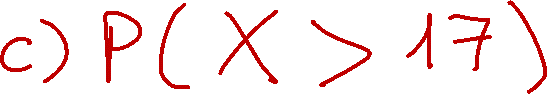 c) P(X > 17)